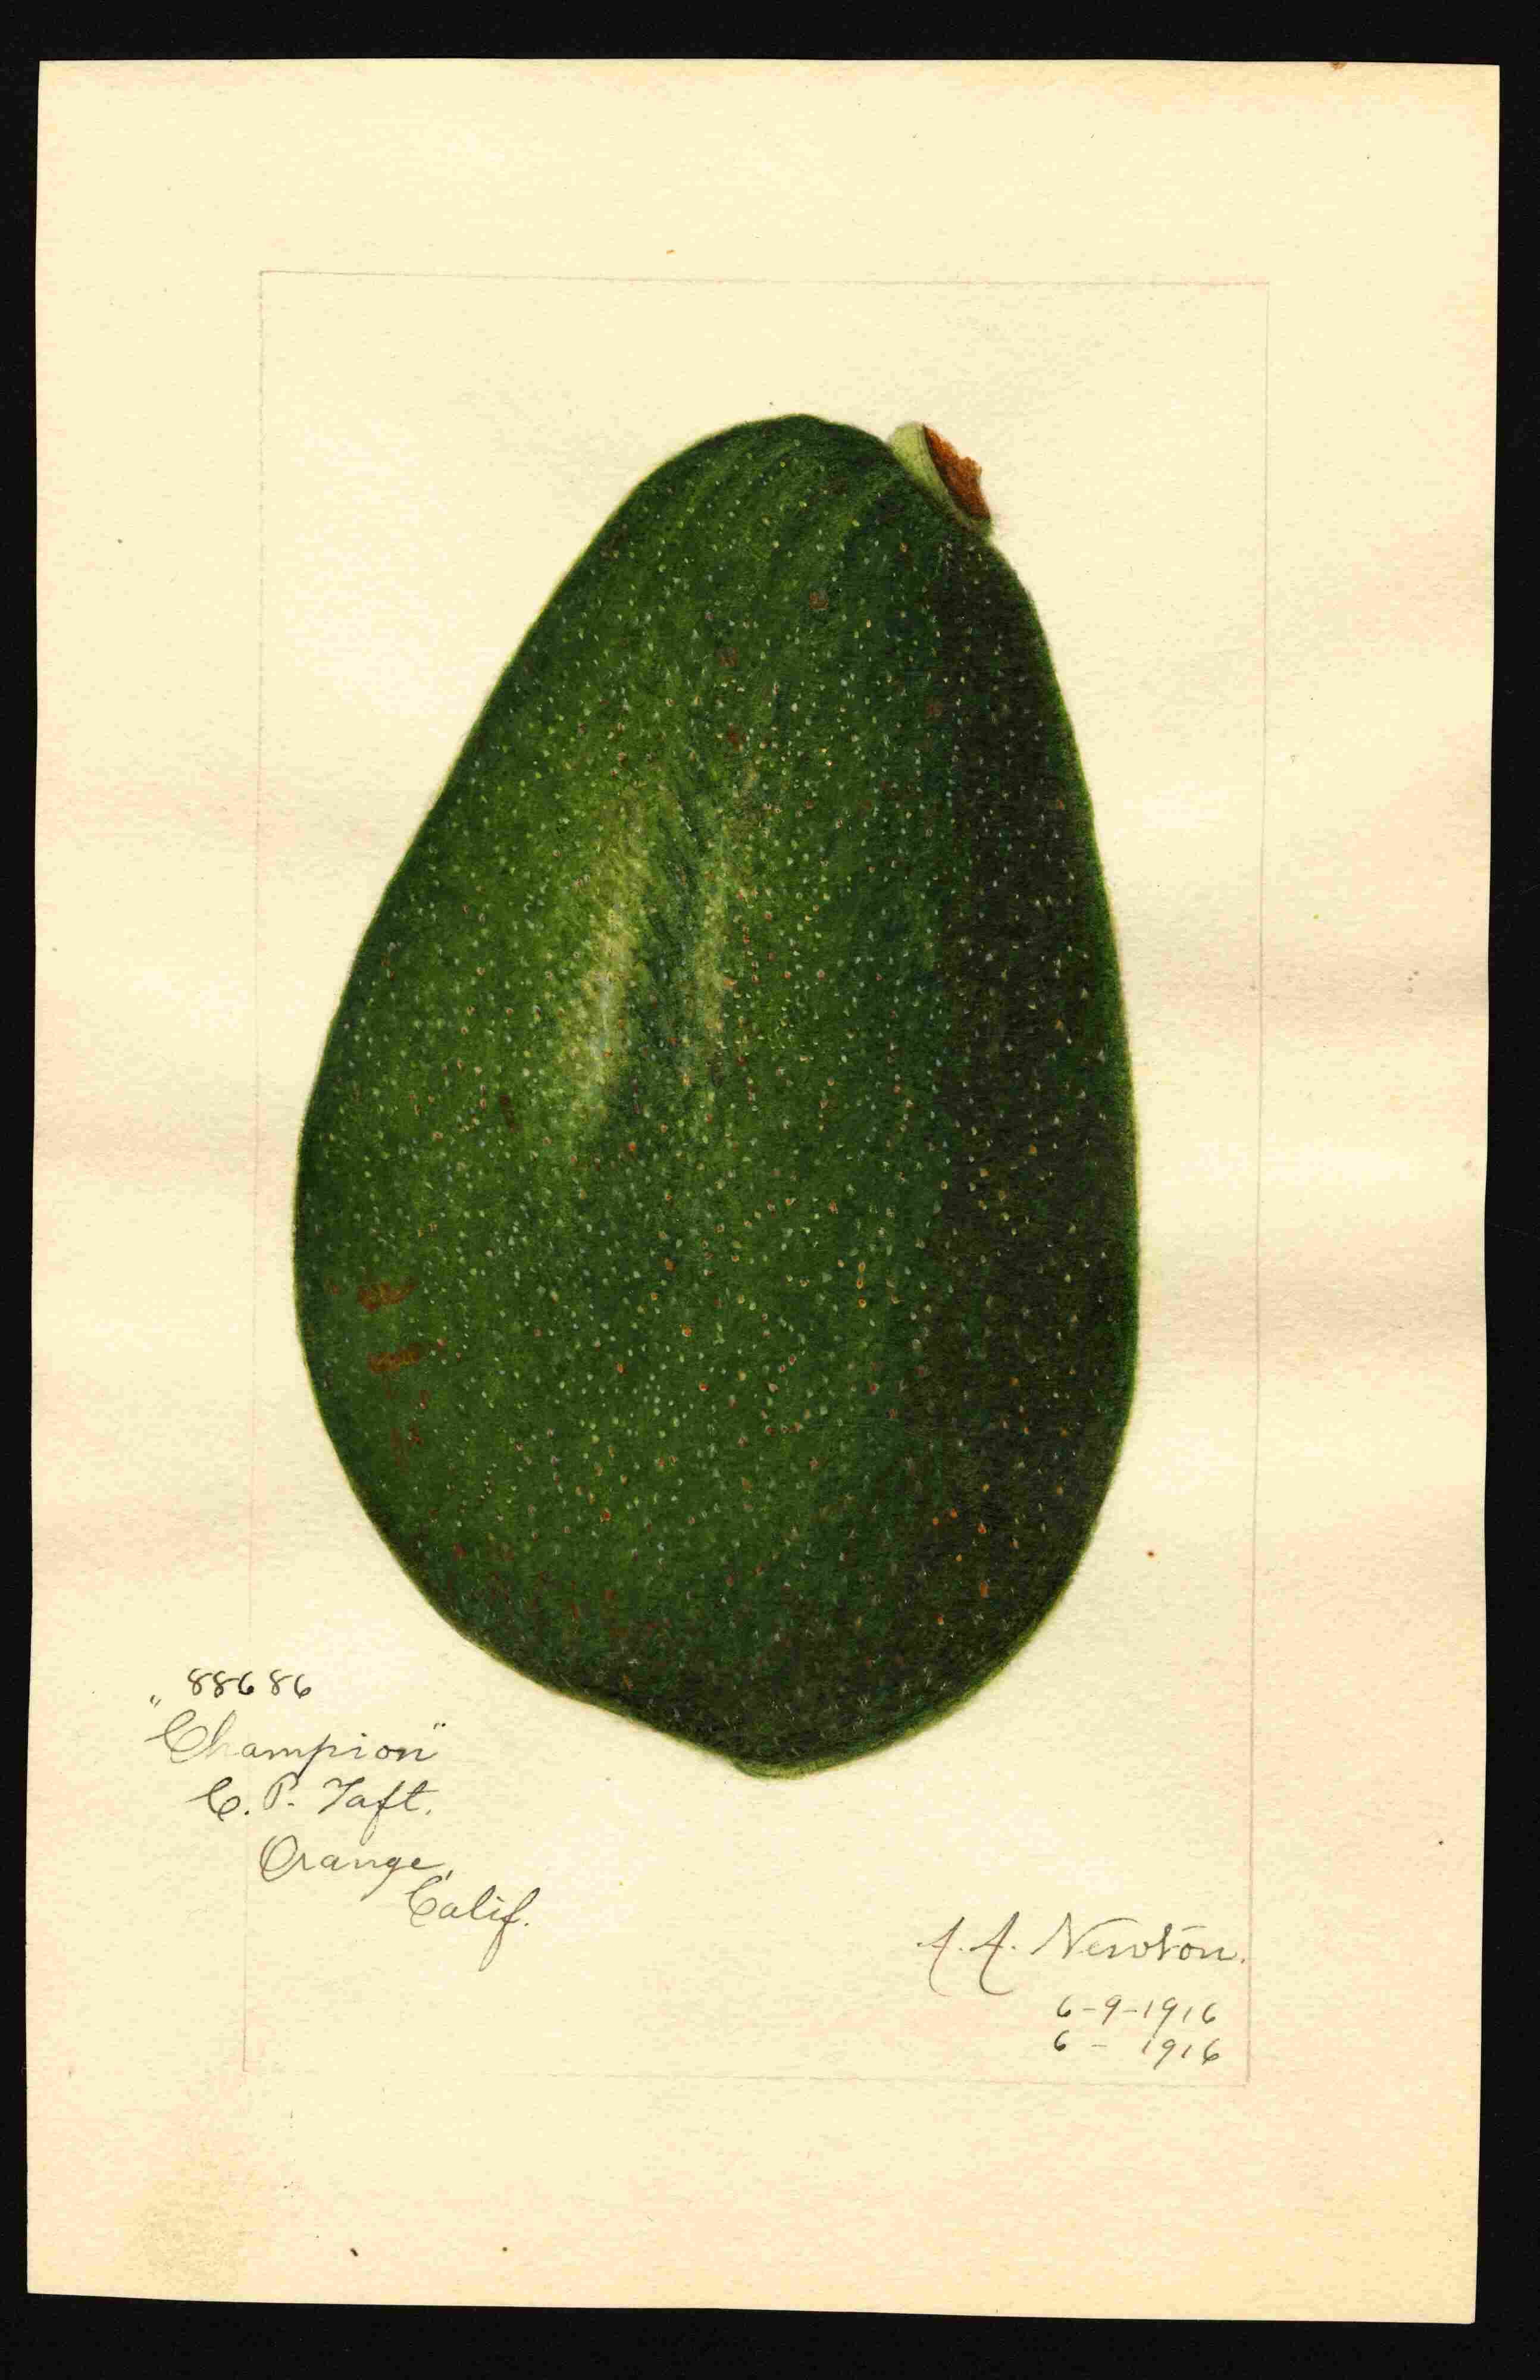 88686
"Champion"
C. P. Taft.
Orange,
Calif.
A. A. Newton.
6-9-1916
6- 1916